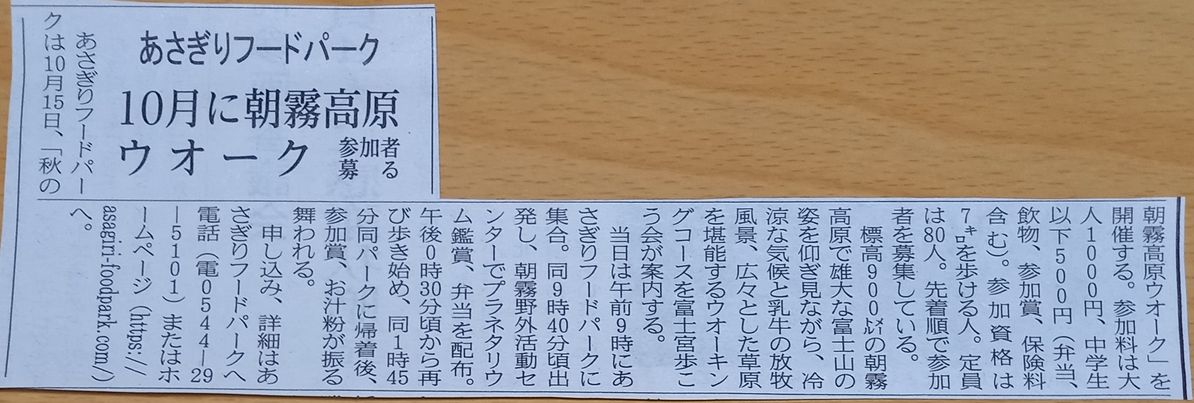 あさぎりフードパーク
10月に朝霧高原
ウオーク 参加者募る
あさぎりフードパー
クは10月15日、「秋の
朝霧高原ウオーク」を
開催する。参加料は大
人1000円、中学生
以下500円（弁当、
飲物、参加賞、保険料
含む）。参加資格は
7㌔を歩ける人。定員
は80人。先着順で参加
者を募集している。
標高900㍍の朝霧
高原で雄大な富士山の
姿を仰ぎ見ながら、冷
涼な気候と乳牛の放牧
風景、広々とした草原
を堪能するウオーキン
グコースを富士宮歩こ
う会が案内する。
当日は午前9時にあ
さぎりフードパークに
集合。同9時40分頃出
発し、朝霧野外活動セ
ンターでプラネタリウ
ム鑑賞、弁当を配布。
午後0時30分頃から再
び歩き始め、同1時45
分同パークに帰着後、
参加賞、お汁粉が振る
舞われる。
申し込み、詳細はあ
さぎりフードパークへ
電話（電0544―29
―5101）またはホ
ームページ（https://
asagiri-foodpark.com/）
へ。